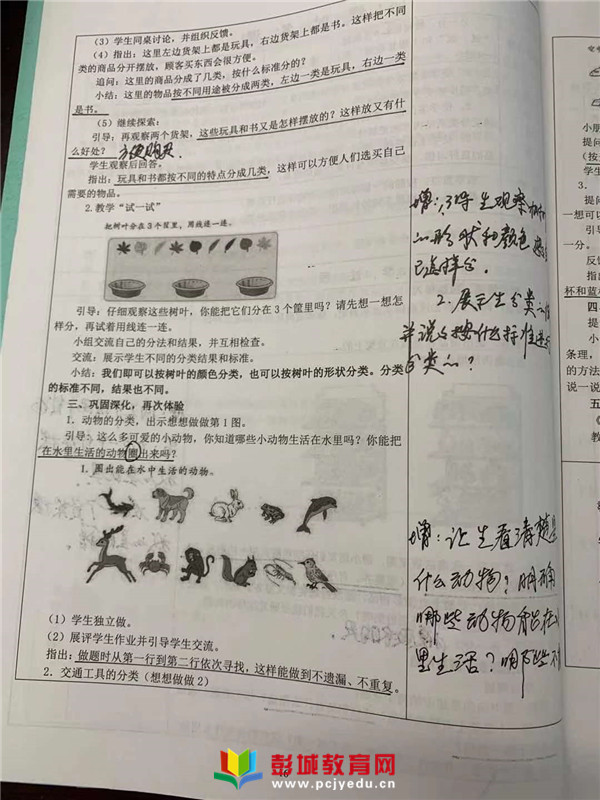 （3）学生同桌讨论，并组织反馈。
（4）指出：这里左边货架上都是玩具，右边货架上都是书。这样把不同
类的商品分开摆放，顾客买东西会很方便。
追问：这里的商品分成了几类，按什么标准分的？
小结：这里的物品按不同用途被分成两类，左边一类是玩具，右边一类
是书。
（5）继续探索：
引导：再观察两个货架，这些玩具和书又是怎样摆放的？这样放又有什
么好处？方便购买.
学生观察后回答。
指出：玩具和书都按不同的特点分成几类，这样可以方便人们选买自己
需要的物品。
2.教学“试一试”
把树叶分在3个筐里，用线连一连。
引导：仔细观察这些树叶，你能把它们分在3个筐里吗？请先想一想怎
样分，再试着用线连一连。
小组交流自己的分法和结果，并互相检查。
交流：展示学生不同的分类结果和标准。
小结：我们即可以按树叶的颜色分类，也可以按树叶的形状分类。分类
的标准不同，结果也不同。
三、巩固深化，再次体验
1．动物的分类，出示想想做做第1图。
引导：这么多可爱的小动物，你知道哪些小动物生活在水里吗？你能把
在水里生活的动物圈出来吗？
1．圈出能在水中生活的动物。
（1）学生独立做。
（2）展评学生作业并引导学生交流。
指出：做题时从第一行到第二行依次寻找，这样能做到不遗漏、不重复。
2．交通工具的分类（想想做做2）
增：1.引导生观察树叶
的形状和颜色
2.展示生分类
并说一说按什么标准进行
分类的？
增：让生看清楚是
什么动物？明确
哪些动物能在水
里生活？哪些不
小朋
提问
（按
学生
3．
提问
一想可以
引导
一分。
反馈
指
杯和蓝
四
条理，
的方法
说一说
五
教
16
彭城教育网
www.pcjyedu.cn